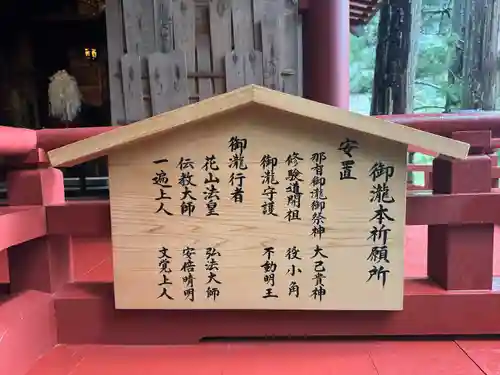 御瀧本祈願所
安置
那智御瀧御祭神 大己貴神
修験道開祖 役小角
御瀧守護 不動明王
御瀧行者
花山法皇 弘法大師
伝教大師 安倍晴明
一遍上人 文覚上人